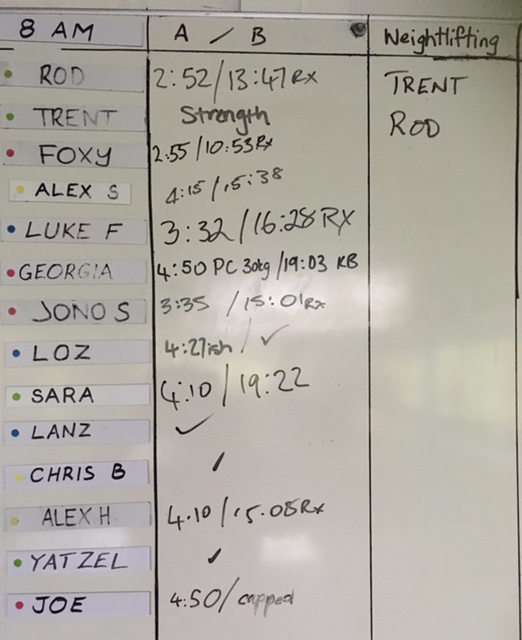 8 AM A / B Weightlifting
ROD 2:52/13:47 RX TRENT
TRENT Strength ROD
FOXY 2:55/10:53 Rx
ALEX S 4:15/15:38
LUKE F 3:32/16:28 RX
GEORGIA 4:50 PC 30kg/19:03 KB
JONO S 3:35 /15:01 Rx
LOZ 4:27ish/ ✓
SARA 4:10/19:22
LANZ ✓
CHRIS B /
ALEX H 4.10/15.08 Rx
YATZEL ✓
JOE 4:50/ capped